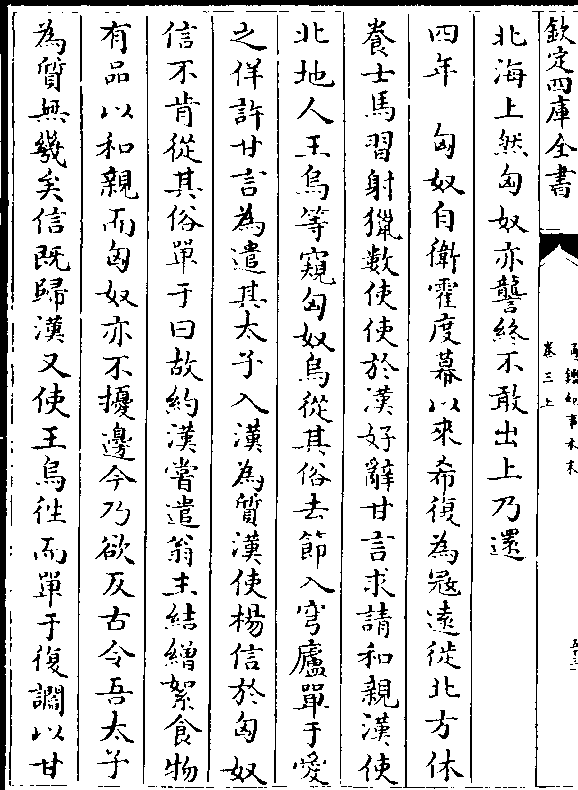 欽定四庫全書
卷三上
北海上然匈奴亦讋終不敢出上乃還
四年　匈奴自衛霍度幕以來希復為寇遠徙北方休
養士馬習射獵數使使於漢好辭甘言求請和親漢使
北地人王烏等窺匈奴烏從其俗去節入穹廬單于愛
之佯許甘言為遣其太子入漢為質漢使楊信於匈奴
信不肯從其俗單于曰故約漢嘗遣翁主結繒絮食物
有品以和親而匈奴亦不擾邊今乃欲反古令吾太子
為質無幾矣信既歸漢又使王烏往而單于復讇以甘